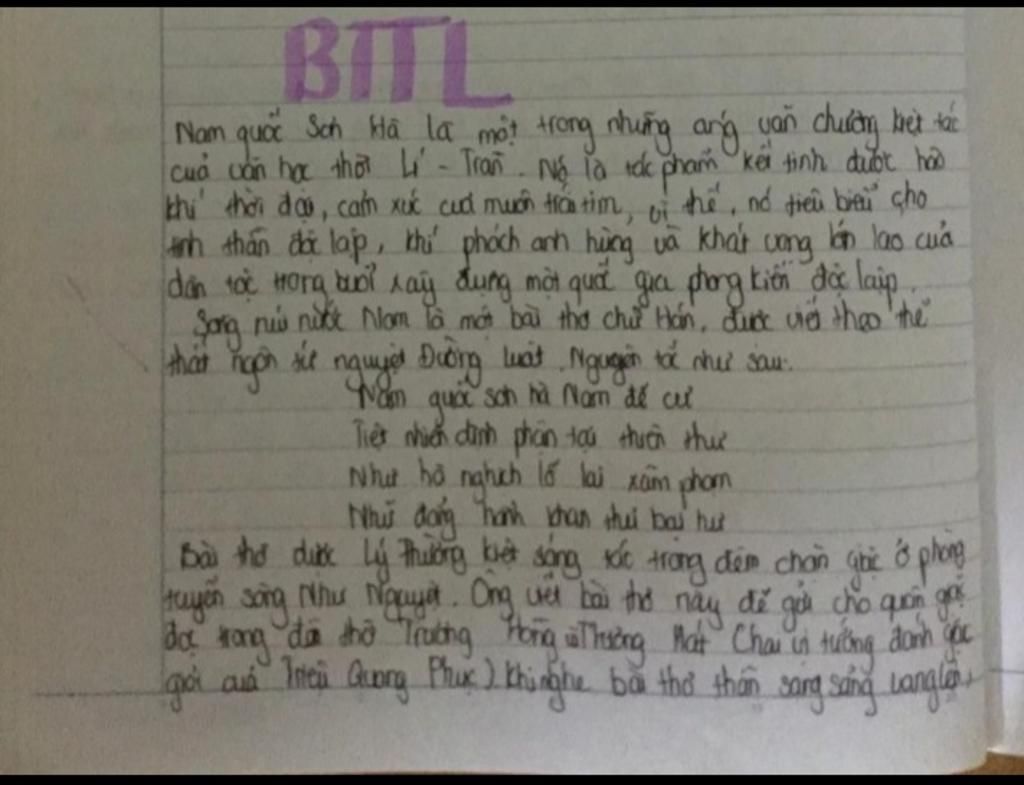 BTTL
Nam quốc Sơn Hà là một trong những áng văn chương kiệt tác
của văn học thời Lí - Trần. Nó là tác phẩm kết tinh được hào
khí thời đại, cảm xúc của muôn trái tim, vì thế, nó tiêu biểu cho
tinh thần độc lập, khí phách anh hùng và khát vọng lớn lao của
dân tộc trong buổi xây dựng một quốc gia phong kiến độc lập.
Sông núi nước Nam là một bài thơ chữ Hán, được viết theo thể
thất ngôn tứ nguyệt Đường luật. Nguyên tác như sau:
Nam quốc sơn hà Nam đế cư
Tiệt nhiên định phận tại thiên thư
Như hồ nghịch lỗ lai xâm phạm
Nhữ đẳng hành khan thủ bại hư
Bài thơ được Lý Thường Kiệt sáng tác trong đêm chặn giặc ở phòng
tuyến sông Như Nguyệt. Ông viết bài thơ này để gửi cho quân
đọc trong đền thờ Trương Hống Trương Hát (hai vị tướng đánh giặc
giỏi của Triệu Quang Phục). Khi nghe bài thơ thần sang sảng vang lên,